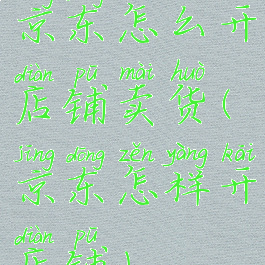 京东怎么开
diàn pū mài huò
店铺卖货(
jīng dōng zěn yàng kāi
京东怎样开
diàn pū
店铺)